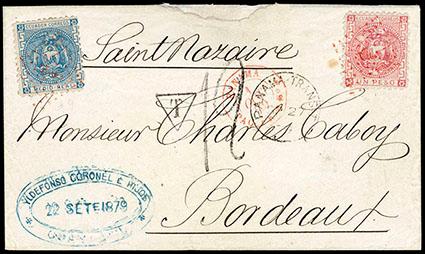 ECUADOR CORREOS
MEDIO REAL
UN PESO
Saint Nazaire
PANAMA TRANSIT
T
Monsieur Charles Caboy
Bordeaux
YLDEFONSO CORONEL E HIJOS
22 SETE 1879